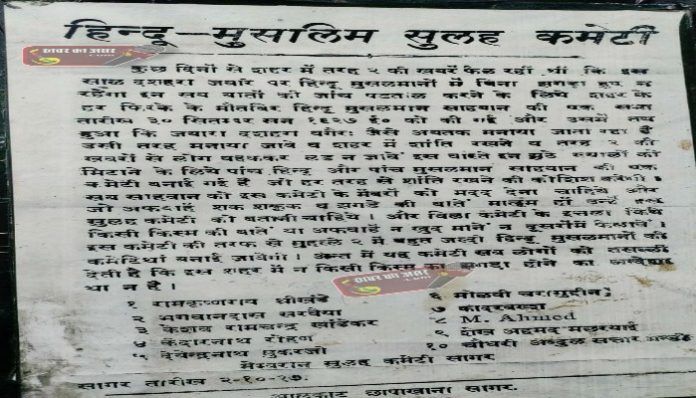 हिन्दू-मुसलिम सुलह कमेटी
कुछ दिनों से शहर में तरह २ की खबरें फैल रहीं थीं कि इस
साल दशहरा जवारे पर हिन्दू मुसलमानों में बिना झगड़ा हुए न
रहेगा इन सब बातों की जांच पड़ताल करने के लिये शहर के
हर फिरके के मौतबिर हिन्दू मुसलमान साहबान की एक सभा
तारीख ३० सितम्बर सन १९२७ ई० को की गई और उसमें तय
हुआ कि जवारा दशहरा वगैरः जैसे अबतक मनाया जाता रहा है
उसी तरह मनाया जावे व शहर में शांति रखने व तरह २ की
खबरों से लोग बहककर लड़ न जावें इस वास्ते इन झूठे ख्यालों को
मिटाने के लिये पांच हिन्दू और पांच मुसलमान साहबान की एक
कमेटी बनाई गई है जो हर तरह से शांति रखने की कोशिश करेगी।
सब साहबान को इस कमेटी के मेंबरों को मदद देना चाहिये और
जो अफवाहें शक शकूक व झगड़े की बातें मालूम हों उन्हें इस
सुलह कमेटी को बताना चाहिये। और बिला कमेटी के इत्तला किये
किसी किस्म की बातें या अफवाहें न खुद माने न दूसरोंमें फैलावें।
इस कमेटी की तरफ से मुहल्ले २ में बहुत जल्दी हिन्दू मुसलमानों की
कमेटियां बनाई जावेंगी। अन्त में यह कमेटी सब लोगों को तसल्ली
देती है कि इस शहर में न किसी किस्म का झगड़ा होने का अन्देशा
था न है।
१ रामकृष्णराव श्रीखंडे
२ भगवानदास सरवैया
३ केशव रामचन्द्र खांडेकर
४ केदारनाथ रोहण
५ देवेन्द्रनाथ मुकरजी
६ मौलवी चरागुद्दीन
७ कादरबख्श
८ M. Ahmed
९ शेख अहमद
१० चौधरी अब्दुल सत्तार
मेम्बरान सुलह कमेटी सागर
सागर तारीख २-१०-२७.
आलकाट छापाखाना सागर.
खबर का असर
.com
खबर का असर
.com